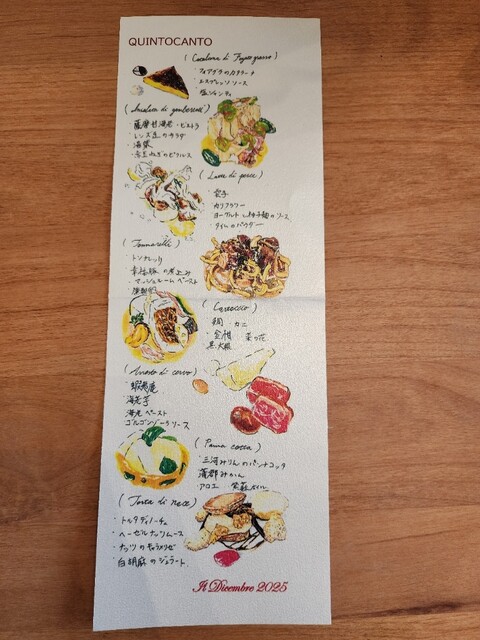 QUINTOCANTO
(Catalana di Fegato grasso)
・フォアグラのカタラーナ
・エスプレッソソース
・塩ジャンドゥ
(Insalata di gamberetti)
・薩摩甘海老・ビストラ
・レンズ豆のサラダ
・海藻
・赤玉ねぎのピクルス
(Latte di pesce)
・雲子
・カリフラワー
ヨーグルト 柚子麹のソース
・タイムのパウダー
(Tonnarelli)
・トンナレッリ
・幸福豚の煮込み
・マッシュルームペースト
(Cartoccio)
・鯛 カニ
・金柑 菜の花
黒大根
(Arrosto di cervo)
・蝦夷鹿
・海老芋
・ペースト
ゴルゴンゾーラソース
(Panna cotta)
・三河みりんのパンナコッタ
・蒲郡みかん
・アロエ 紫蘇オイル
(Torta di noce)
・トルタディノーチェ
・ヘーゼルナッツムース
・ナッツのキャラメリゼ
・白胡麻のジェラート
Il Dicembre 2025